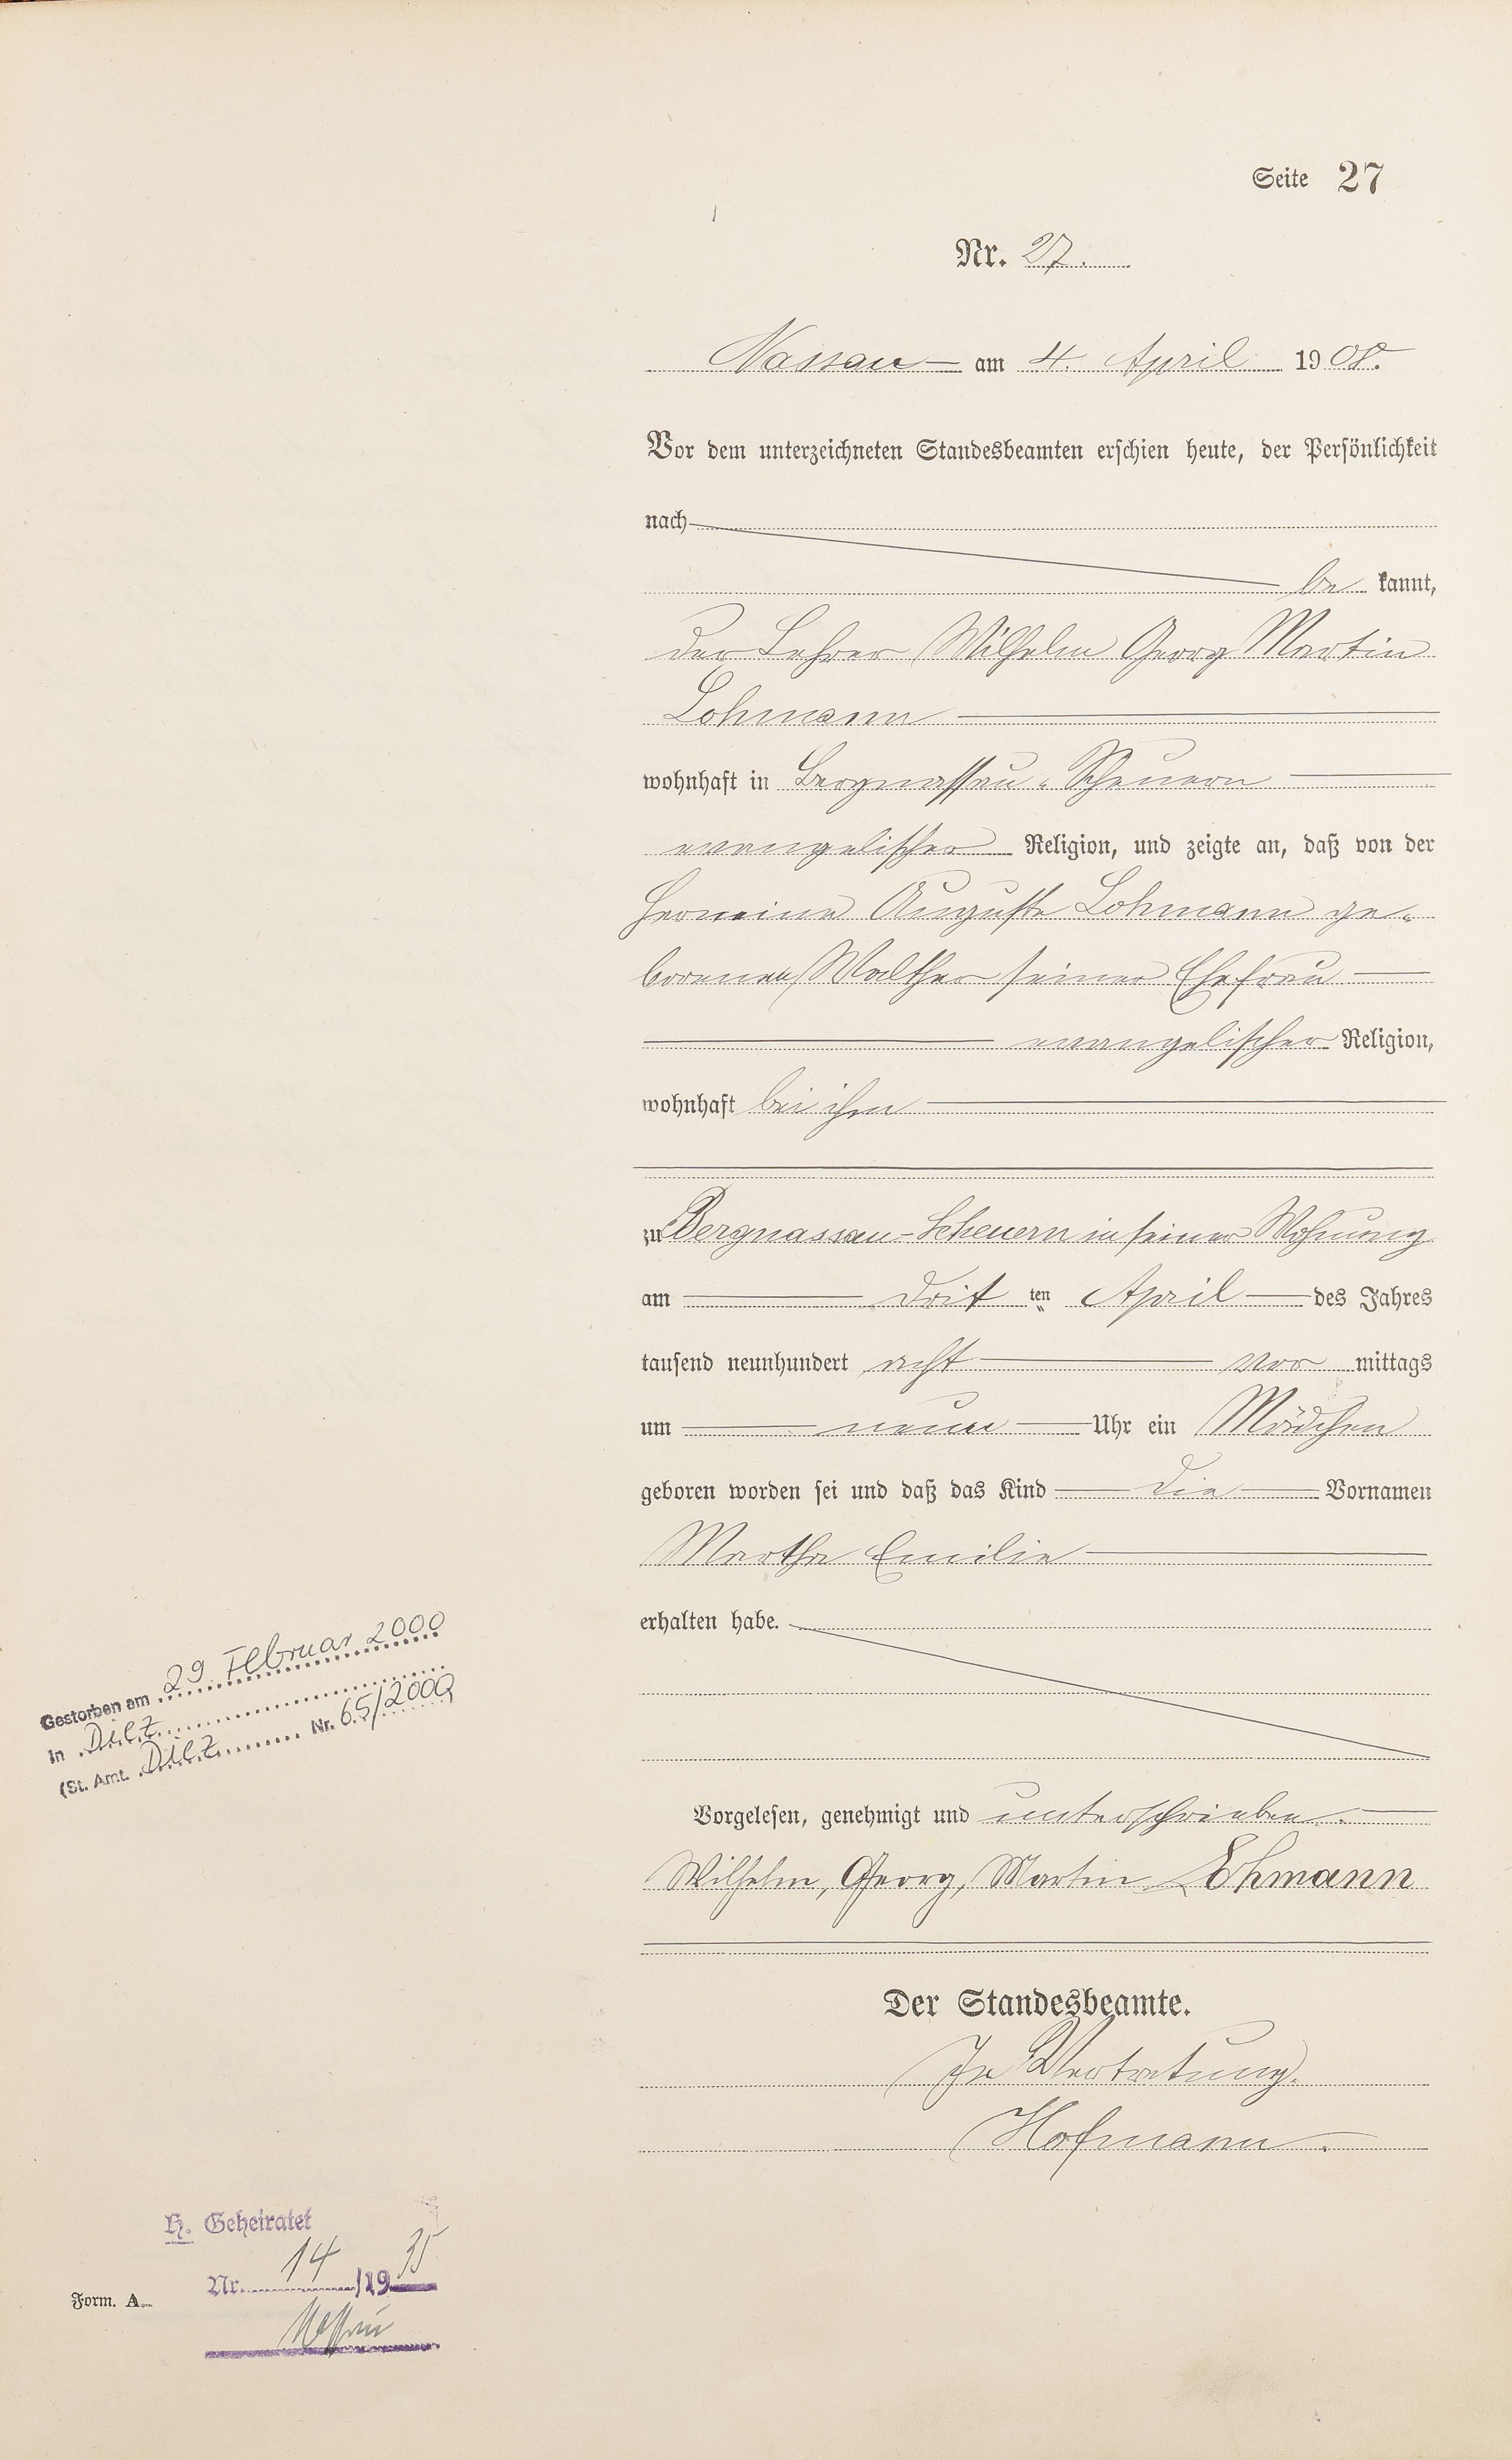 Seite 27
Nr. 27.
Nassau am 4. April 1908.
Vor dem unterzeichneten Standesbeamten erschien heute, der Persönlichkeit
nach
be kannt,
der Lehrer Wilhelm Georg Martin
Lohmann
wohnhaft in Bergnassau-Scheuern
evangelischer Religion, und zeigte an, daß von der
Hermine Auguste Lohmann ge-
borenen Walther seiner Ehefrau
evangelischer Religion,
wohnhaft bei ihm
zu Bergnassau-Scheuern in seiner Wohnung
am drit ten April des Jahres
tausend neunhundert acht vor mittags
um neun Uhr ein Mädchen
geboren worden sei und daß das Kind die Vornamen
Martha Emilie
erhalten habe.
Vorgelesen, genehmigt und unterschrieben.
Wilhelm, Georg, Martin Lohmann
Der Standesbeamte.
In Vertretung.
Hofmann.
Gestorben am 29. Februar 2000
in Diez
(St. Amt. Diez Nr. 65/2000)
H. Geheiratet
Nr. 14 /1935
Nassau
Form. A.